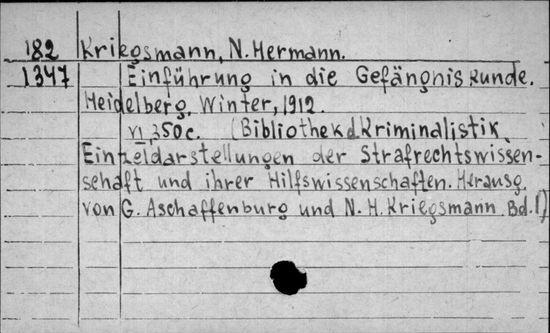 182 Kriegsmann, N. Hermann.
1347 Einführung in die Gefängniskunde.
Heidelberg, Winter, 1912.
VI, 350c. (Bibliothek d. Kriminalistik,
Einzeldarstellungen der Strafrechtswissen-
schaft und ihrer Hilfswissenschaften. Herausg.
von G. Aschaffenburg und N. H. Kriegsmann. Bd. 1)